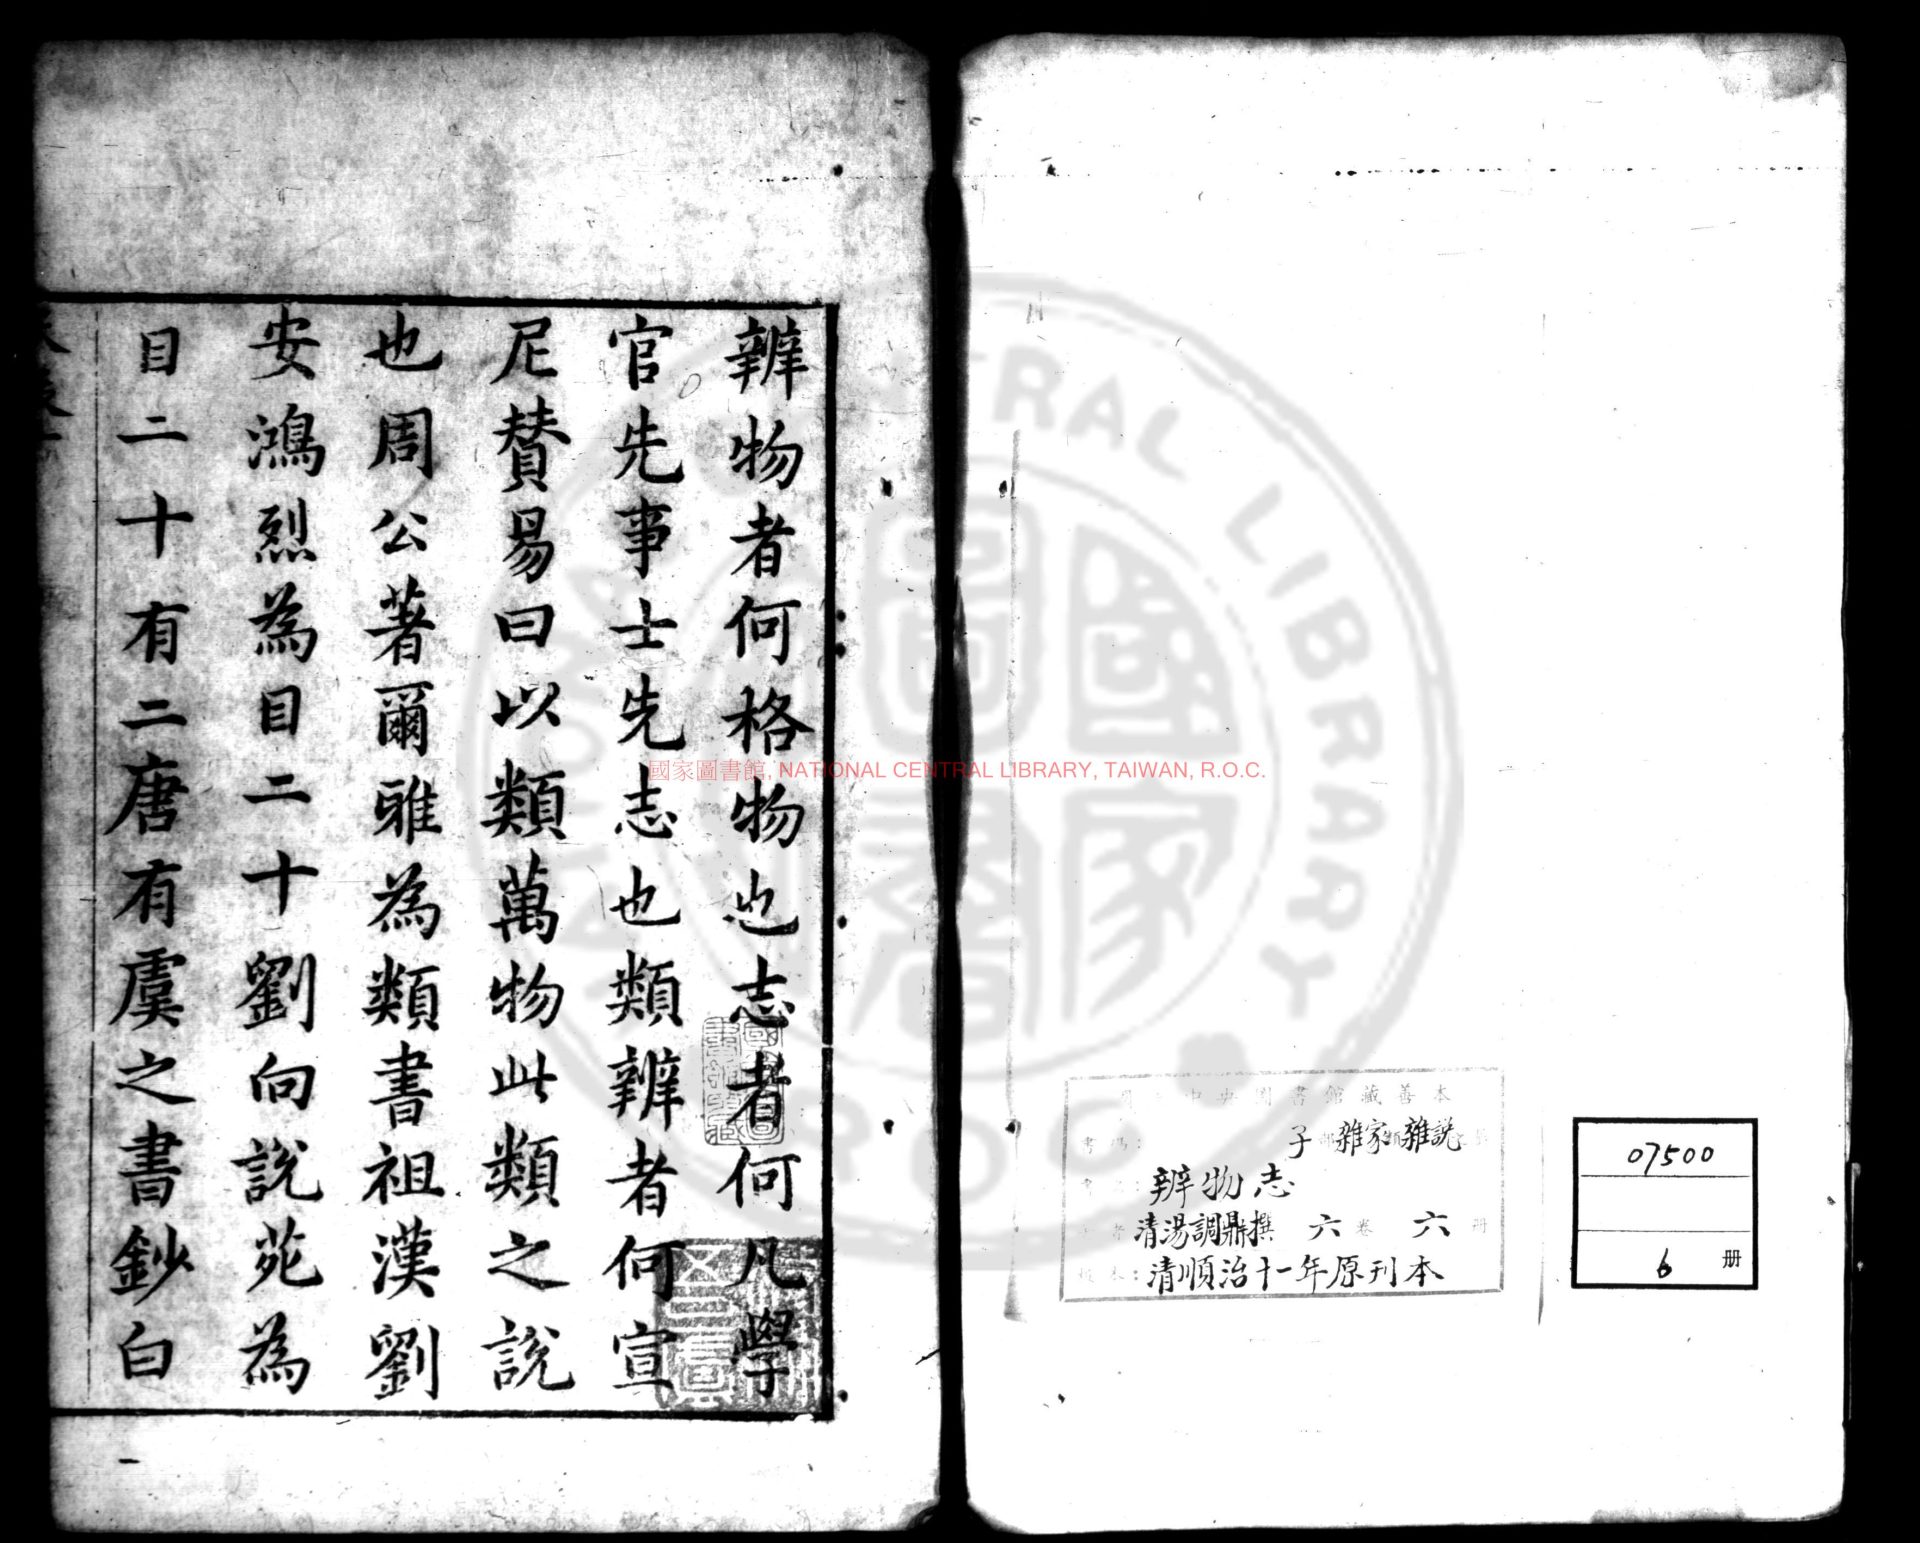 07500
6 册
國家圖書館, NATIONAL CENTRAL LIBRARY, TAIWAN, R.O.C.
中央圖書館藏善本
子 雜家 雜說
辨物志
清湯調鼎撰 六卷 六册
版本：清順治十一年原刊本
辨物者何格物也志者何凡學
官先事士先志也類辨者何宣
尼贊易曰以類萬物此類之說
也周公著爾雅為類書祖漢劉
安鴻烈為目二十劉向說苑為
目二十有二唐有虞之書鈔白